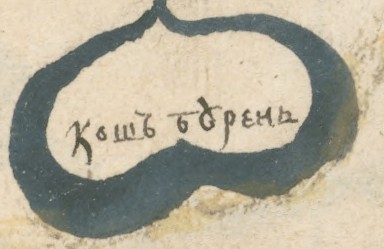 Кошъ бꙋренъ